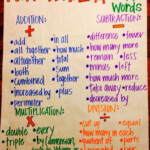 Words
ADDITION:
+
•add
•all together
•altogether
•both
•combined
•increased by
•perimeter
•in all
•how much
•total
•sum
•together
•plus
SUBTRACTION:
•difference
•fewer
•how many more
•remain
•less
•minus
•left
•how much more
•take away
•reduce
•decreased by
MULTIPLICATION:
x
•double
•every
•triple
•by (dimension)
DIVISION:
÷
•equal
•how many in each